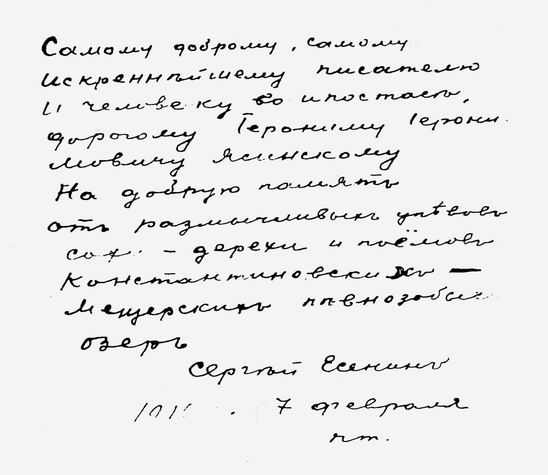 Самому доброму, самому
искреннѣйшему писателю
и человеку во ипостась,
дорогому Іерониму Іерони-
мовичу Ясинскому
На добрую память
отъ размычливыхъ упѣвовъ
сохи - дерехи и поёмовъ
Константиновскихъ —
Мещерскихъ певнозобых
озеръ
Сергѣй Есенинъ
7 февраля
пт.